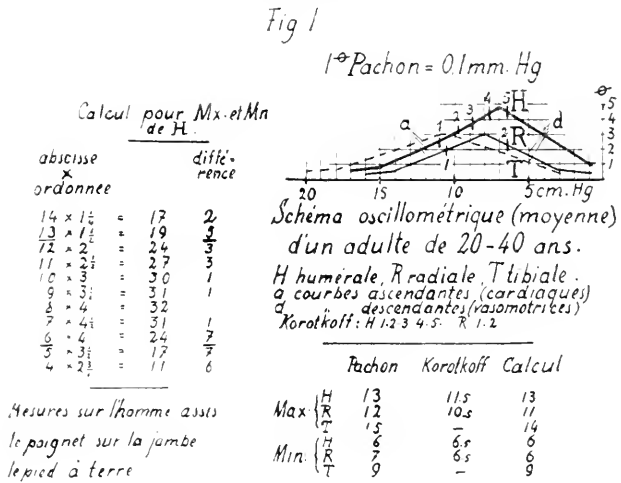 Fig 1
1ᶿ Pachon = 0,1 mm. Hg
Calcul pour Mx. et Mn
de H.
abscisse
×
ordonnée
diffé-
rence
14 × 1¼ = 17 2
13 × 1½ = 19 5
12 × 2 = 24 3
11 × 2½ = 27 3
10 × 3 = 30 1
9 × 3½ = 31 1
8 × 4 = 32
7 × 4½ = 31 1
6 × 4 = 24 7
5 × 3½ = 17 7
4 × 2¾ = 11 6
Mesures sur l'homme assis
le poignet sur la jambe
le pied à terre
H
R
T
a
d
1 2 3 4 5
1 2
θ
5
4
3
2
1
20 15 10 5 cm. Hg
Schéma oscillométrique (moyenne)
d'un adulte de 20-40 ans.
H humérale, R radiale, T tibiale.
a courbes ascendantes (cardiaques)
d " descendantes (vasomotrices)
Korotkoff: H 1. 2 3 4. 5. R 1. 2
Pachon Korotkoff Calcul
Max. H 13 11.5 13
R 12 10.5 11
T 15 — 14
Min. H 6 6.5 6
R 7 6.5 6
T 9 — 9